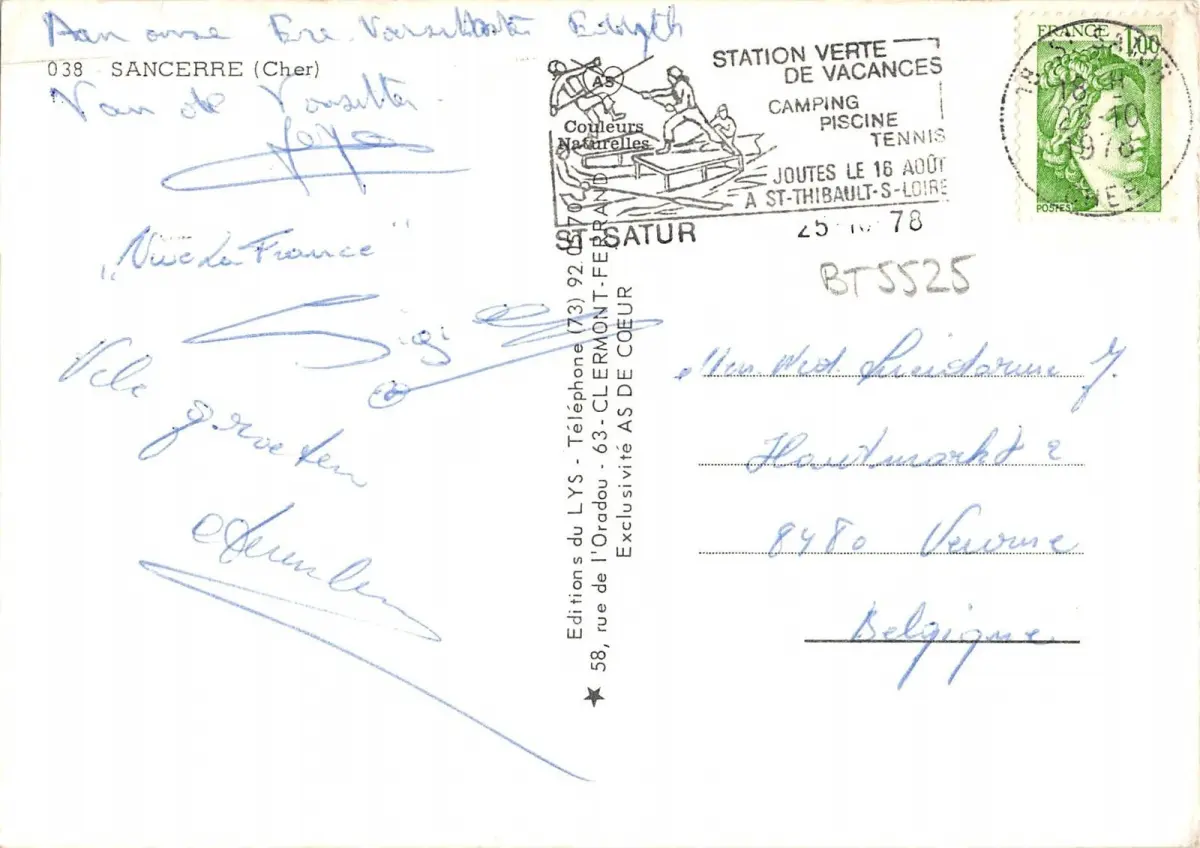 Aan onze Ere Voorzitster
038 SANCERRE (Cher)
Van de Voorzitter
"Vive La France"
Gigi
Vele
groeten
AS
Couleurs
Naturelles
STATION VERTE
DE VACANCES
CAMPING
PISCINE
TENNIS
JOUTES LE 16 AOÛT
A ST-THIBAULT-S-LOIRE
ST SATUR
25 10 78
FRANCE 1,00
POSTES
18 H
1978
CHER
BT5525
Editions du LYS - Téléphone (73) 92
58, rue de l'Oradou - 63-CLERMONT-FERRAND
Exclusivité AS DE COEUR
Houtmarkt 2
8480 Veurne
Belgique